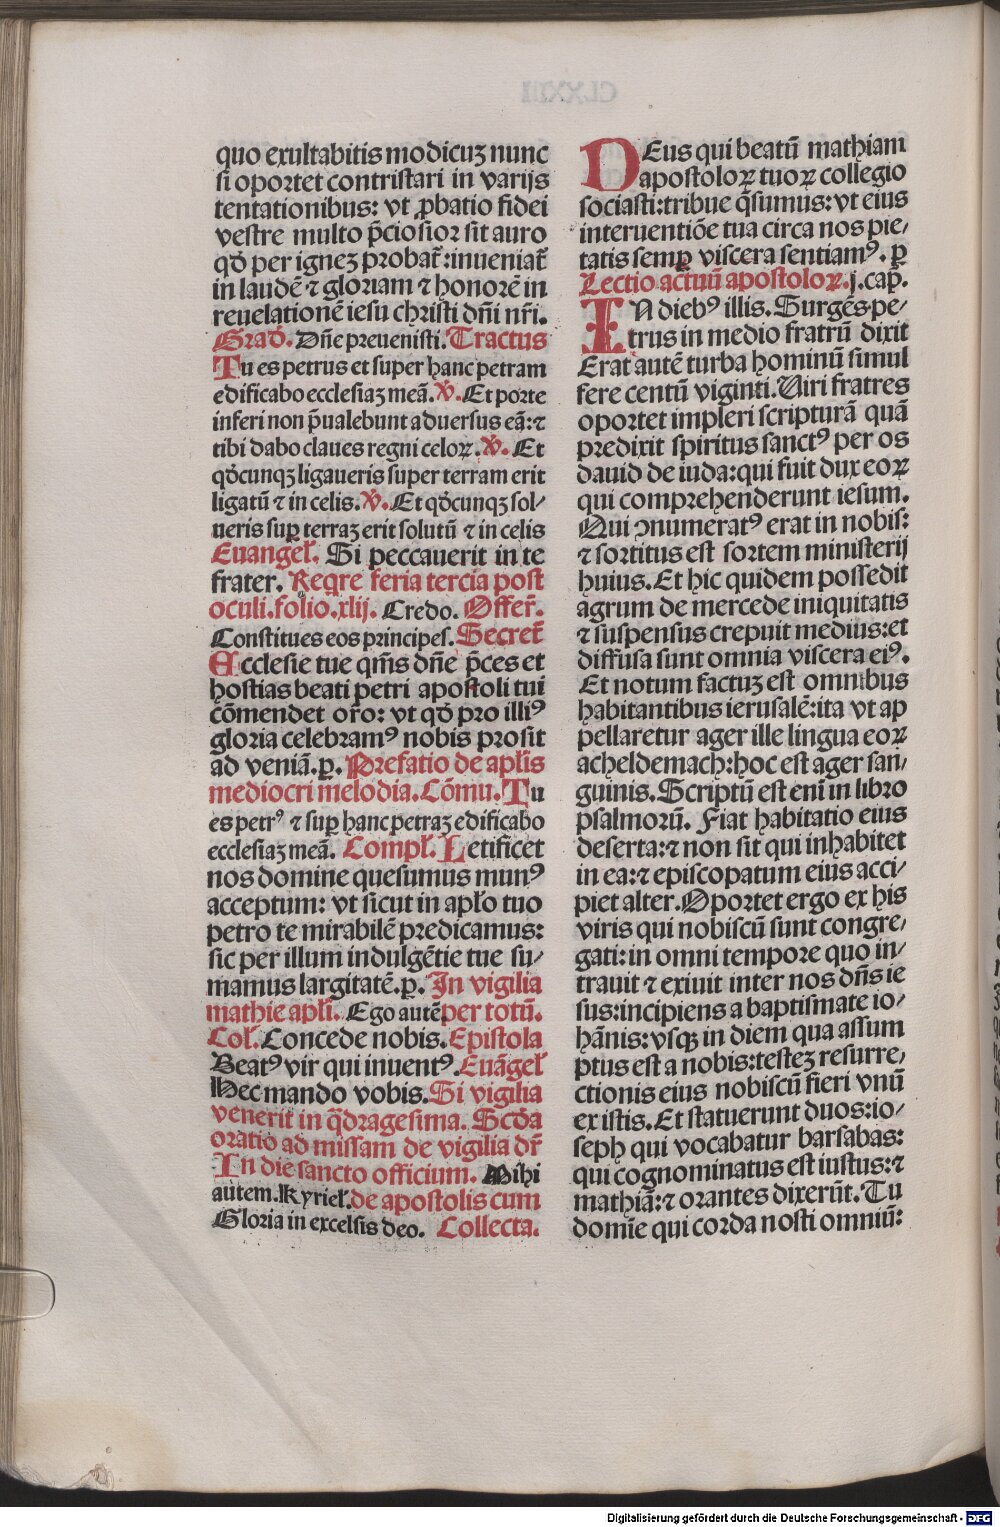 quo exultabitis modicuꝫ nunc
si oportet contristari in varijs
tentationibus: vt ꝓbatio fidei
vestre multo p̄ciosior sit auro
qd̓ per ignez probat᷑: inueniat᷑
in laudē ⁊ gloriam ⁊ honorē in
reuelationē iesu christi dn̄i nr̄i.
Grad̓. Dn̄e preuenisti. Tractus
Tu es petrus et super hanc petram
edificabo ecclesiaꝫ meā. V̓. Et porte
inferi non p̄ualebunt aduersus eā: ⁊
tibi dabo claues regni celoꝝ. V̓. Et
qd̓cunqꝫ ligaueris super terram erit
ligatū ⁊ in celis. V̓. Et qd̓cunqꝫ sol⸗
ueris suꝑ terraꝫ erit solutū ⁊ in celis
Euangel̓. Si peccauerit in te
frater. Reqre feria tercia post
oculi. folio. xlij. Credo. Offer̄.
Constitues eos principes. Secret᷑
Ecclesie tue qm̄s dn̄e p̄ces et
hostias beati petri apostoli tui
cōmendet or̄o: vt qd̓ pro illiꝰ
gloria celebramꝰ nobis prosit
ad veniā. ꝑ. Prefatio de apl̓is
mediocri melodia. Cōmu. Tu
es petrꝰ ⁊ suꝑ hanc petraꝫ edificabo
ecclesiaꝫ meā. Compl̓. Letificet
nos domine quesumus munꝰ
acceptum: vt sicut in apl̓o tuo
petro te mirabilē predicamus:
sic per illum indulgētie tue su⸗
mamus largitatē. ꝑ. In vigilia
mathie apl̓i. Ego autē per totū.
Col̓. Concede nobis. Epistola
Beatꝰ vir qui inuentꝰ. Euāgel̓
Hec mando vobis. Si vigilia
venerit in q̄dragesima. Scd̓a
oratio ad missam de vigilia dr̄
In die sancto officium. Mihi
autem. Kyriel̓. de apostolis cum
Gloria in excelsis deo. Collecta.
DEus qui beatū mathiam
apostoloꝝ tuoꝝ collegio
sociasti: tribue q̄sumus: vt eius
interuentiōe tua circa nos pie⸗
tatis semꝑ viscera sentiamꝰ. ꝑ
Lectio actuū apostoloꝝ. j. cap̄.
IN diebꝰ illis. Surgēs pe⸗
trus in medio fratrū dixit
Erat autē turba hominū simul
fere centū viginti. Viri fratres
oportet impleri scripturā quā
predixit spiritus sanctꝰ per os
dauid de iuda: qui fuit dux eoꝝ
qui comprehenderunt iesum.
Qui ꝯnumeratꝰ erat in nobis:
⁊ sortitus est sortem ministerij
huius. Et hic quidem possedit
agrum de mercede iniquitatis
⁊ suspensus crepuit medius: et
diffusa sunt omnia viscera eiꝰ.
Et notum factuꝫ est omnibus
habitantibus ierusalē: ita vt ap
pellaretur ager ille lingua eoꝝ
acheldemach: hoc est ager san⸗
guinis. Scriptū est enī in libro
psalmorū. Fiat habitatio eius
deserta: ⁊ non sit qui inhabitet
in ea: ⁊ episcopatum eius acci⸗
piet alter. Oportet ergo ex his
viris qui nobiscū sunt congre⸗
gati: in omni tempore quo in⸗
trauit ⁊ exiuit inter nos dn̄s ie
sus: incipiens a baptismate io⸗
hānis: vsqꝫ in diem qua assum
ptus est a nobis: testeꝫ resurre⸗
ctionis eius nobiscū fieri vnū
ex istis. Et statuerunt duos: io⸗
seph qui vocabatur barsabas:
qui cognominatus est iustus: ⁊
mathiā: ⁊ orantes dixerūt. Tu
domīe qui corda nosti omniū:
Digitalisierung gefördert durch die Deutsche Forschungsgemeinschaft - DFG